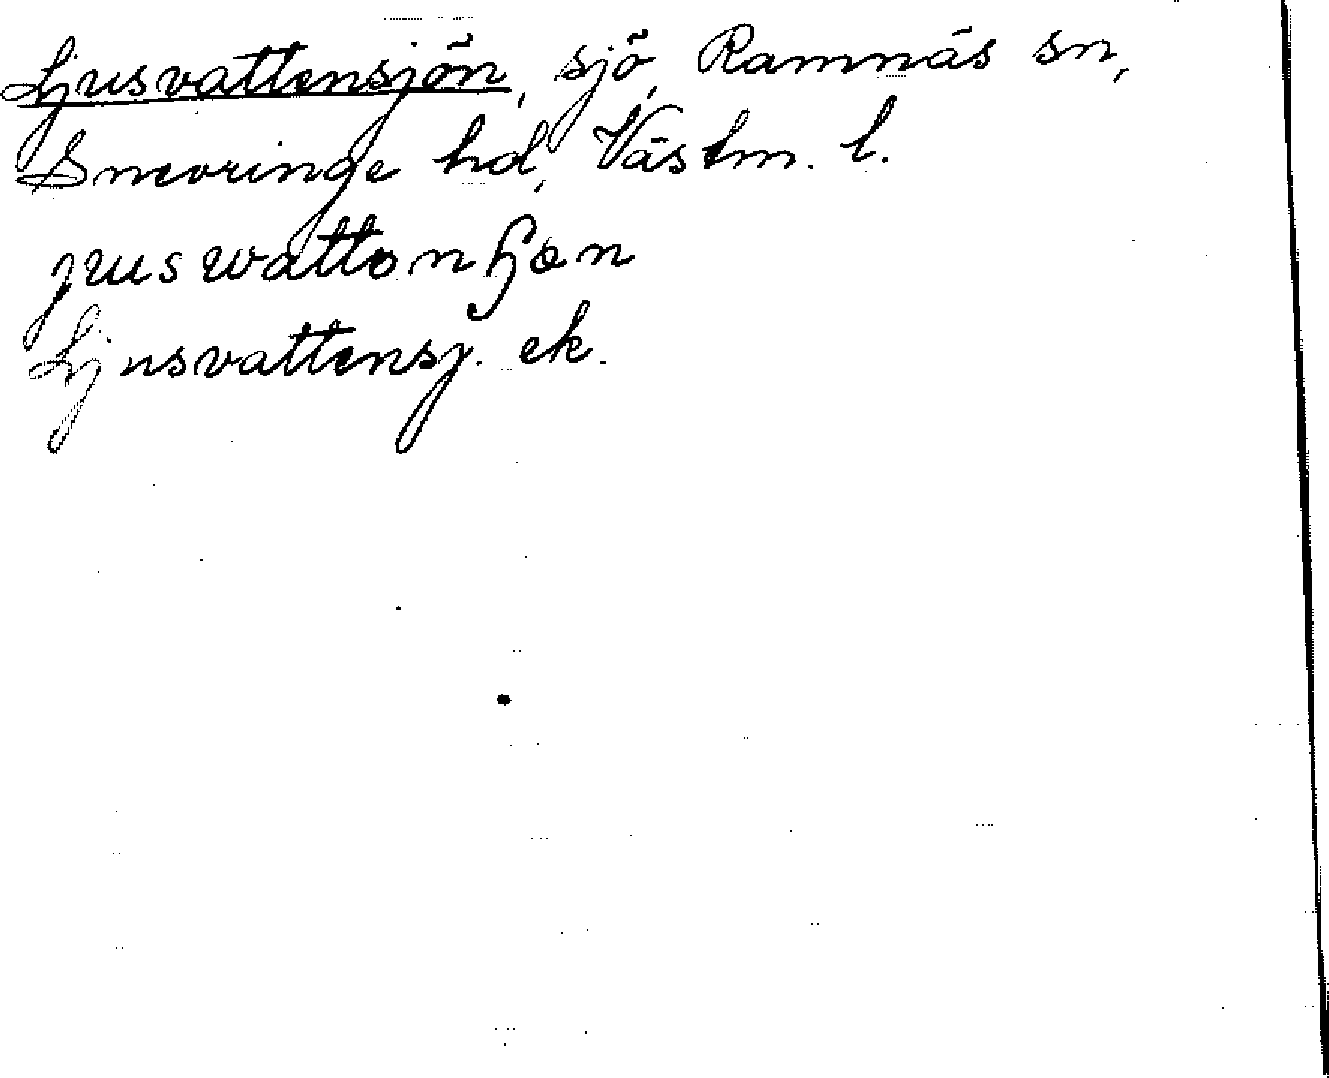 Ljusvattensjön, sjö, Ramnäs sn,
Snevringe hd, Västm. l.
Ljusvattensj. ek.